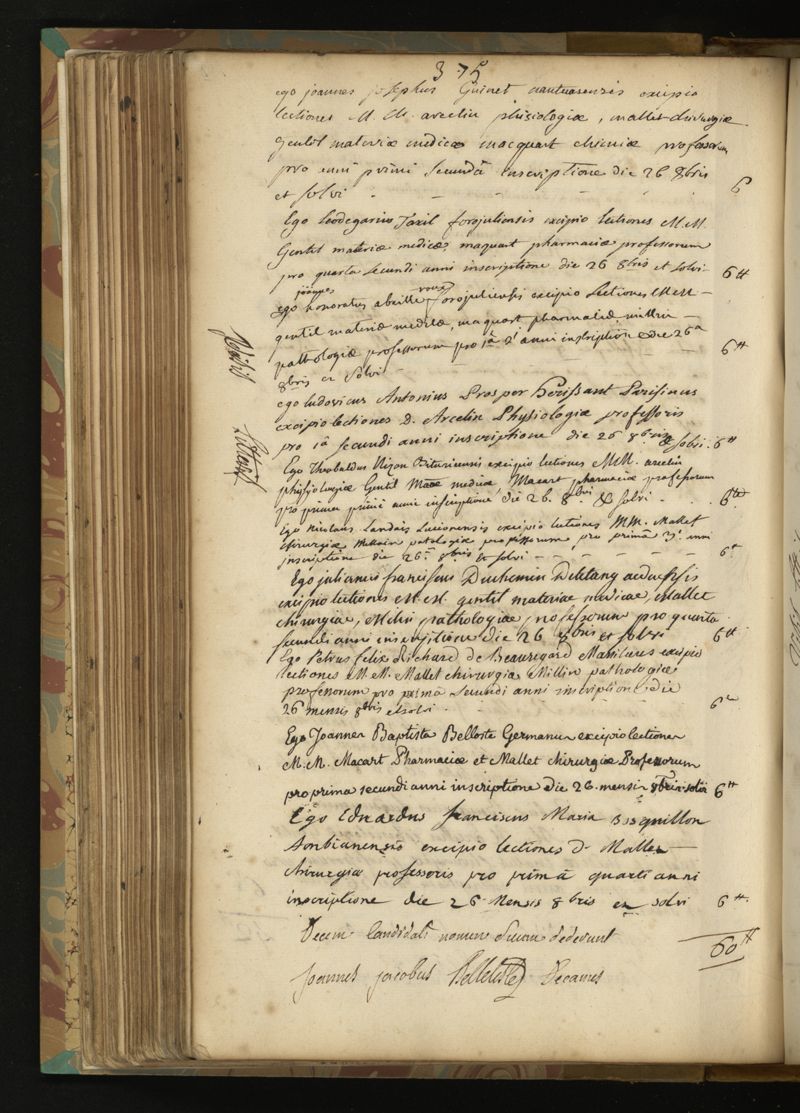 375
ego joannes josephus Guinet nantuasensis excipio
lectiones M. M. arcelin phisiologiæ, mallet chirurgiæ
gentil materiæ medicæ macquart chimiæ professorum
pro anni primi secundâ inscriptione die 26 8bris
et solvi - - - - - 6
Ego Leodegarius Taxil forojuliensis excipio lectiones M.M.
Gentil materiæ medicæ, maquart pharmaciæ professorum
pro quarta secundi anni inscriptione die 26 8bris et solvi - 6 tt
joannes roux
ego honoratus abeille forojuliensis excipio Lectiones M M -
gentil materiæ medicæ, maquart pharmaciæ, millin -
pathologiæ professorum pro 1â 2i anni inscriptione die 26a
8bris et solvi - - - - 6 tt
ego ludovicus Antonius Prosper Hérissant Parisinus
excipio lectiones D. Arcelin Physiologiæ professoris
pro 1â secundi anni inscriptione die 26 8bris & solvi. 6 tt
Ego Theobaldus Nizon Bituricensis excipio lectiones MM. arcelin
phisyologiæ Gentil Maæ medicæ, Macart pharmaciæ professorum
pro prima primi anni inscriptione, die 26. 8bris & solvi - . . 6 tt
Ego Nicolaus Landais Lucionensis excipio lectiones MM. Mallet
chirurgiæ Millin patologiæ professorum pro primâ 3i anni
inscriptione die 26â 8bris et solvi - - - - - 6 tt
Ego julianus franciscus Duchemin Deletang
excipio lectiones M. M. gentil materiæ medicae, Mallet
chirurgiæ, Milin pathologiæ, professorum pro quarta
secundi anni inscriptione die 26 8bris et solvi 6 tt
Ego Petrus felix Richard de Beauregard excipio
lectiones M. M. Mallet chirurgiæ Millin pathologiæ
professorum pro primâ secundi anni inscriptione die
26 mensis 8bris et solvi . - - 6 tt
Ego Joannes Baptista Belloste Germanus excipio lectiones
M. M. Macart Pharmaciæ et Mallet chirurgiæ Professorum
pro prima secundi anni inscriptione die 26. mensis 8bris solvi 6 tt
Ego Eduardus franciscus Maria Bosquillon
excipio lectiones D. Mallet -
chirurgiæ professoris pro primâ quarti anni
inscriptione die 26 Mensis 8bris et solvi 6 tt.
Decem Candidati nomen suum dederunt 60 tt
Joannes jacobus Belleteste Decanus